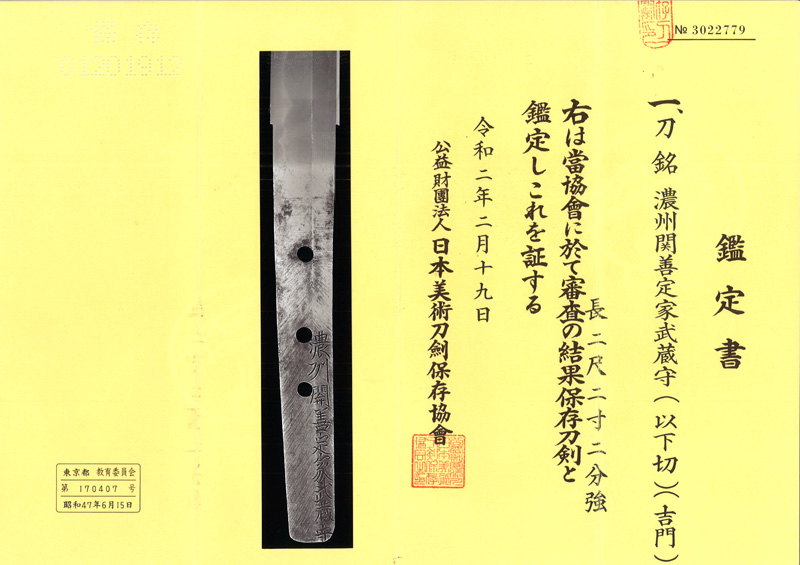 № 3022779
鑑定書
一、刀 銘 濃州関善定家武蔵守(以下切)(吉門)
長二尺二寸二分強
右は當協會に於て審査の結果保存刀剣と
鑑定しこれを証する
令和二年二月十九日
公益財團法人日本美術刀劍保存協會
保存
濃州関善定家武蔵守
東京都 教育委員会
第 170407 号
昭和47年6月15日